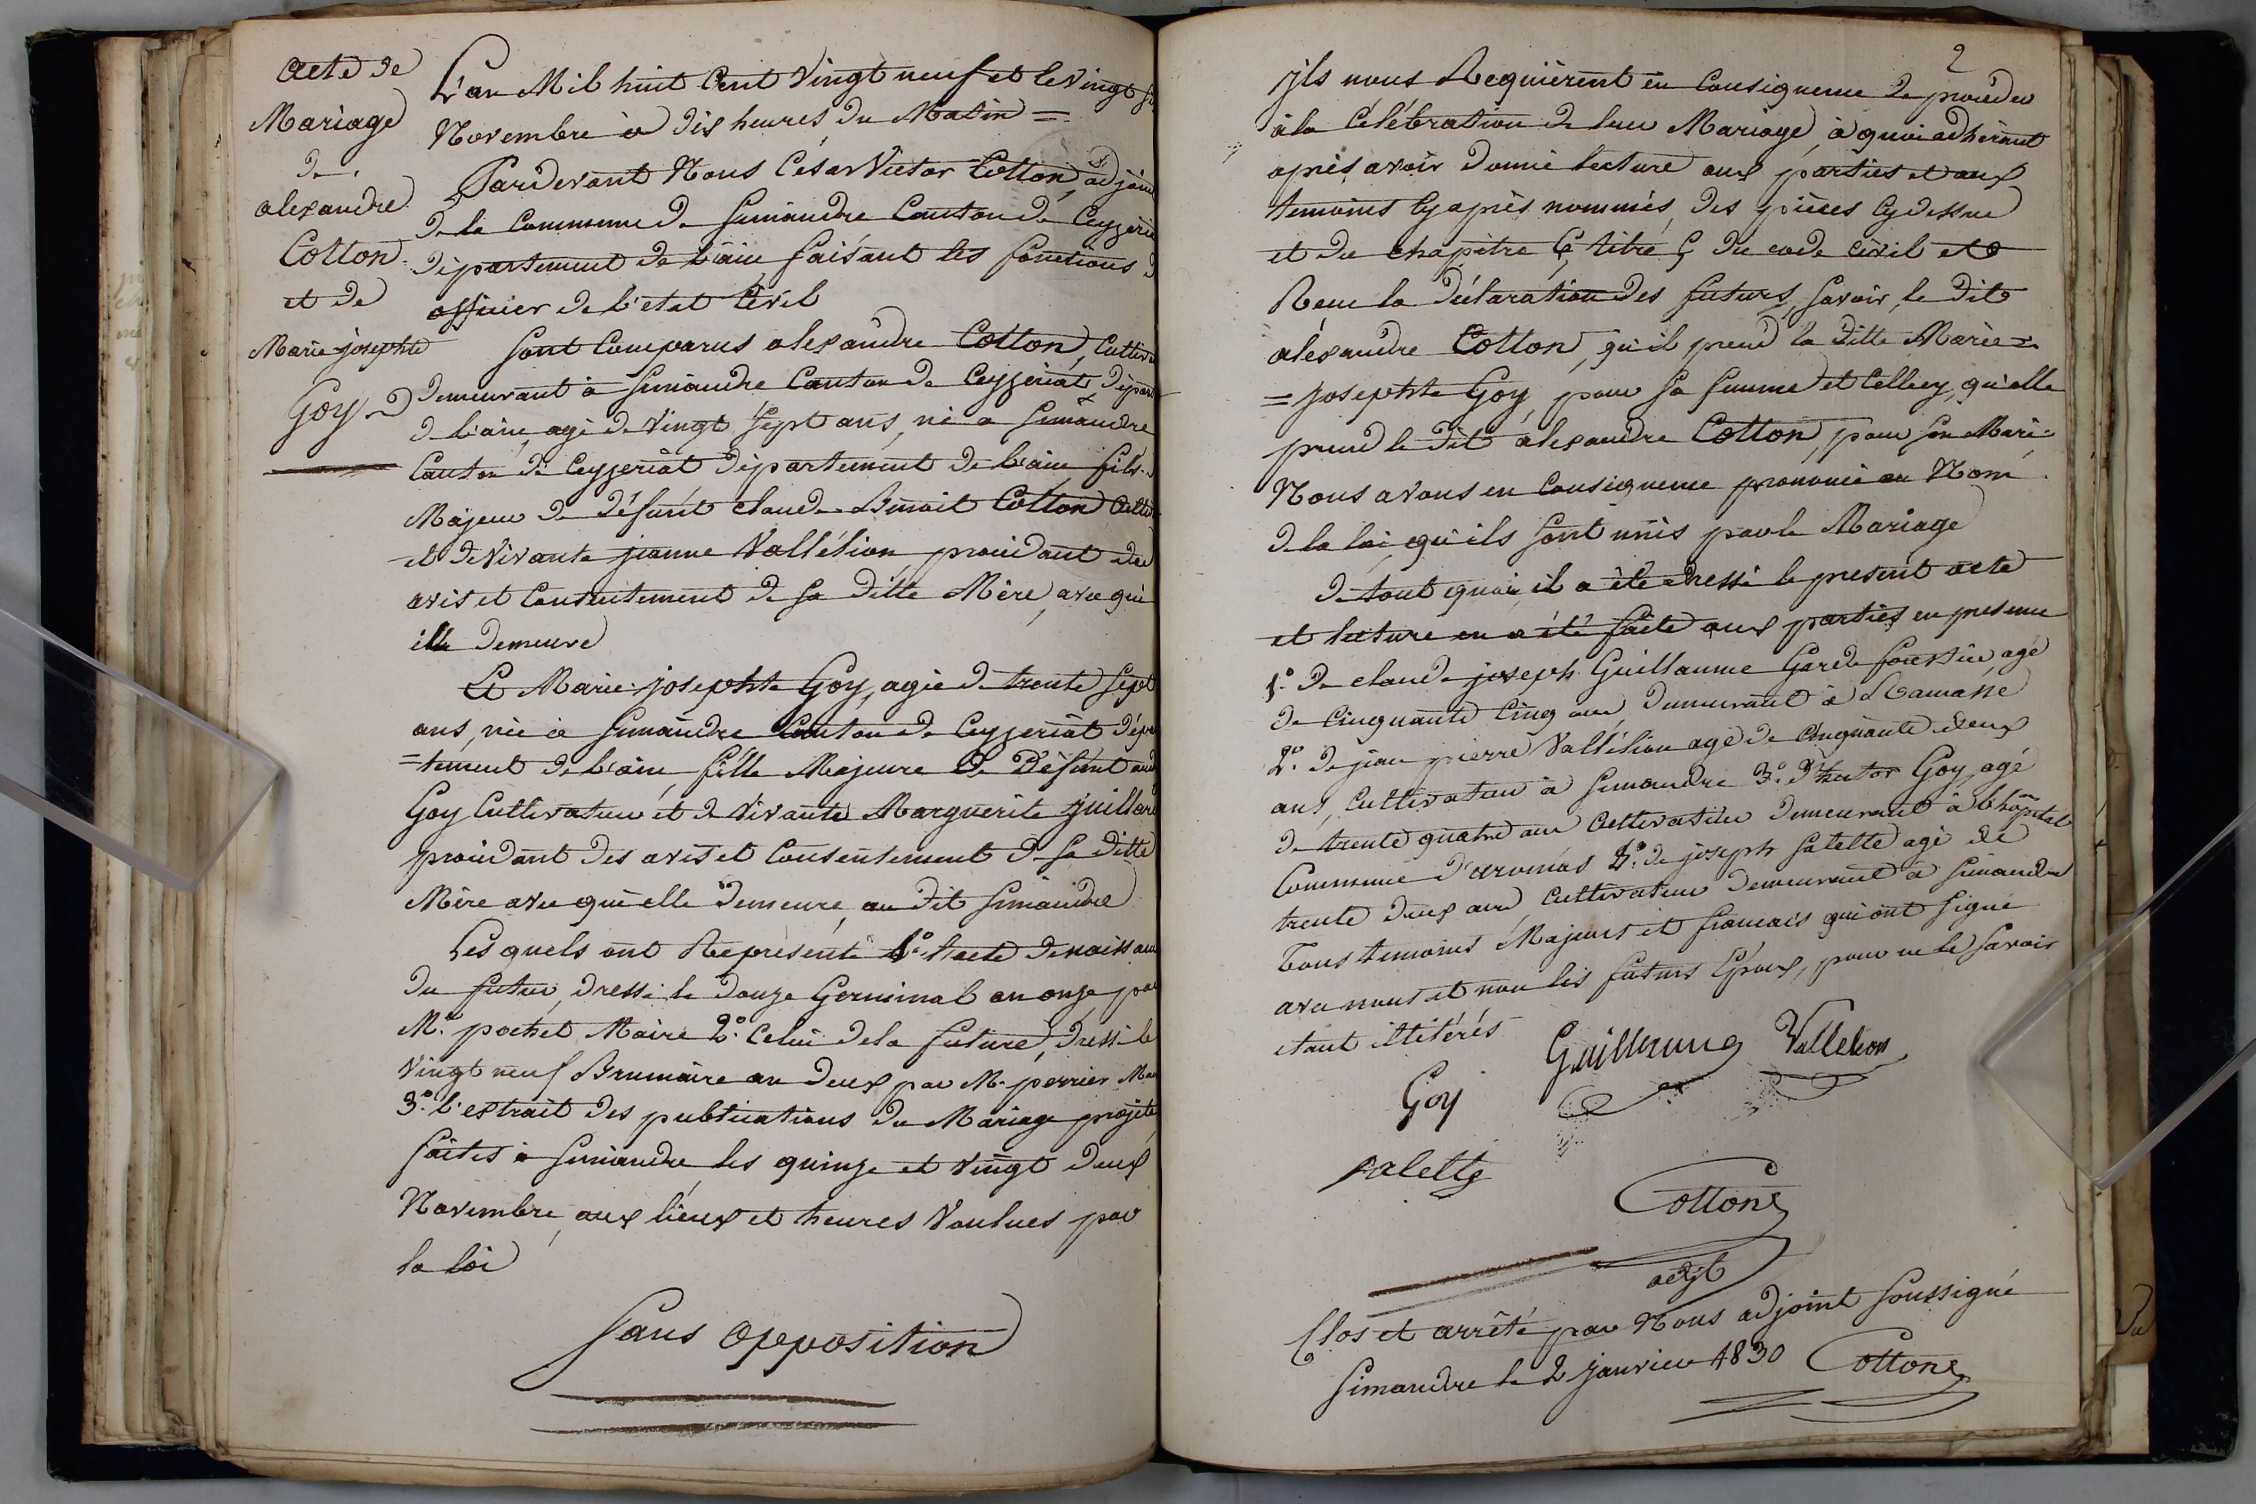 acte de
Mariage
de
alexandre
Cotton
et de
Marie josephte
Goy
L'an Mil huit Cent Vingt neuf et le Vingt
Novembre à dix heures du Matin =
Pardevant Nous César Victor Cotton, adjoint
de la Commune de Simandre Canton de Ceyzeriat
département de l'ain faisant les fonctions d
officier de l'etat Civil
Sont Comparus alexandre Cotton, Cultiva
demeurant à Simandre Canton de Ceyzeriat dépar
de l'ain, agé de Vingt Sept ans, né a Simandre
Canton de Ceyzeriat département de l'ain fils
Majeur de défunt claude Benoit Cotton Culti
et de Vivante jeanne Vallélion, procédant des
avis et Consentement de sa ditte Mère, avec qui
il demeure
Et Marie josephte Goy, agée de trente Sept
ans, née à Simandre Canton de Ceyzeriat dépar
=tement de l'ain, fille Majeure de Défunt
Goy Cultivateur et de Vivante Marguerite juillard
procédant des avis et Consentement de sa ditte
Mère avec qui elle demeure, au dit Simandre
Les quels ont Représenté 1.º L'acte de naissance
du futur, dressé le douze Germinal an onze par
Mr. pochet Maire 2.º Celui de la future, dressé le
Vingt neuf Brumaire an deux par Mr. perrier Mai
3.º l'extrait des publications du Mariage projeté,
faites à Simandre, les quinze et Vingt deux
Novembre, aux lieux et heures Voulues par
la loi
Sans Opposition
2
Ils nous Requièrent en Consequence de procéder
à la Célébration de leur Mariage, à quoi adhérant
après avoir donné lecture aux parties et aux
temoins cy après nommés, des pièces cy dessus
et du chapitre 6, titre 5 du code civil et
Recu la déclaration des futurs, Savoir, le dit
alexandre Cotton, qu'il prend la ditte Marie=
=josephte Goy, pour Sa femme et Celle cy, qu'elle
prend le dit alexandre Cotton, pour Son Mari
Nous avons en Consequence prononcé au Nom
de la loi, qu'ils Sont unis par le Mariage
de tout quoi, il a été dressé le present acte
et lecture en a été faite aux parties en presence
1.º de claude joseph Guillaume Garde forestier, agé
de Cinquante Cinq ans, demeurant à Ramasse
2.º de jean pierre Vallélion agé de Cinquante deux
ans, Cultivateur à Simandre 3.º d'hector Goy, agé
de trente quatre ans Cultivateur demeurant à l'hôpital
Commune d'aromas 4.º de joseph Salette agé de
trente deux ans, Cultivateur demeurant à Simandre
Tous temoins Majeurs et francais qui ont Signé
avec nous et non les futurs Epoux, pour ne le Savoir
etant illitérés
Guillaume Vallelion
Goy
Salette
Cotton
adjt
Clos et arrêté par Nous adjoint Soussigné
Simandre le 2 janvier 1830 Cotton